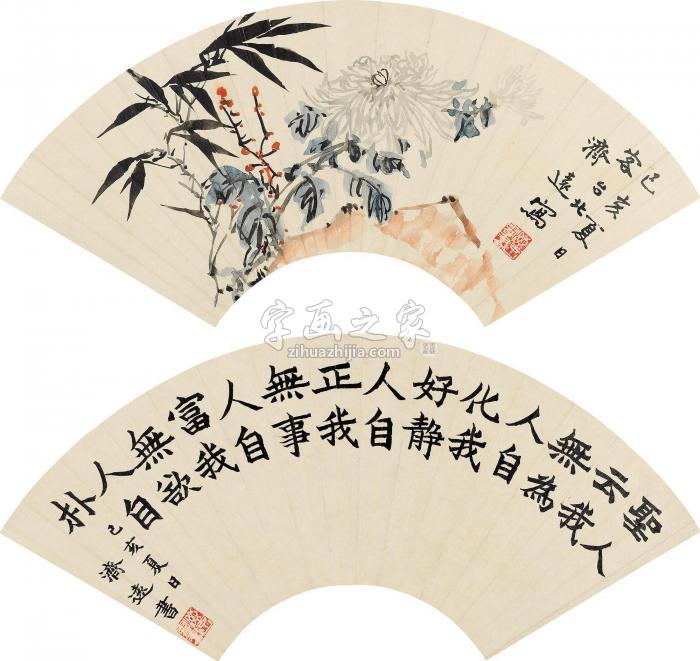 己亥夏日
客台北
濟遠寫
字画之家
zihuazhijia.com
聖人
云我
無為
人自
化我
好靜
人自
正我
無事
人自
富我
無欲
人自
朴
己亥夏日
濟遠書